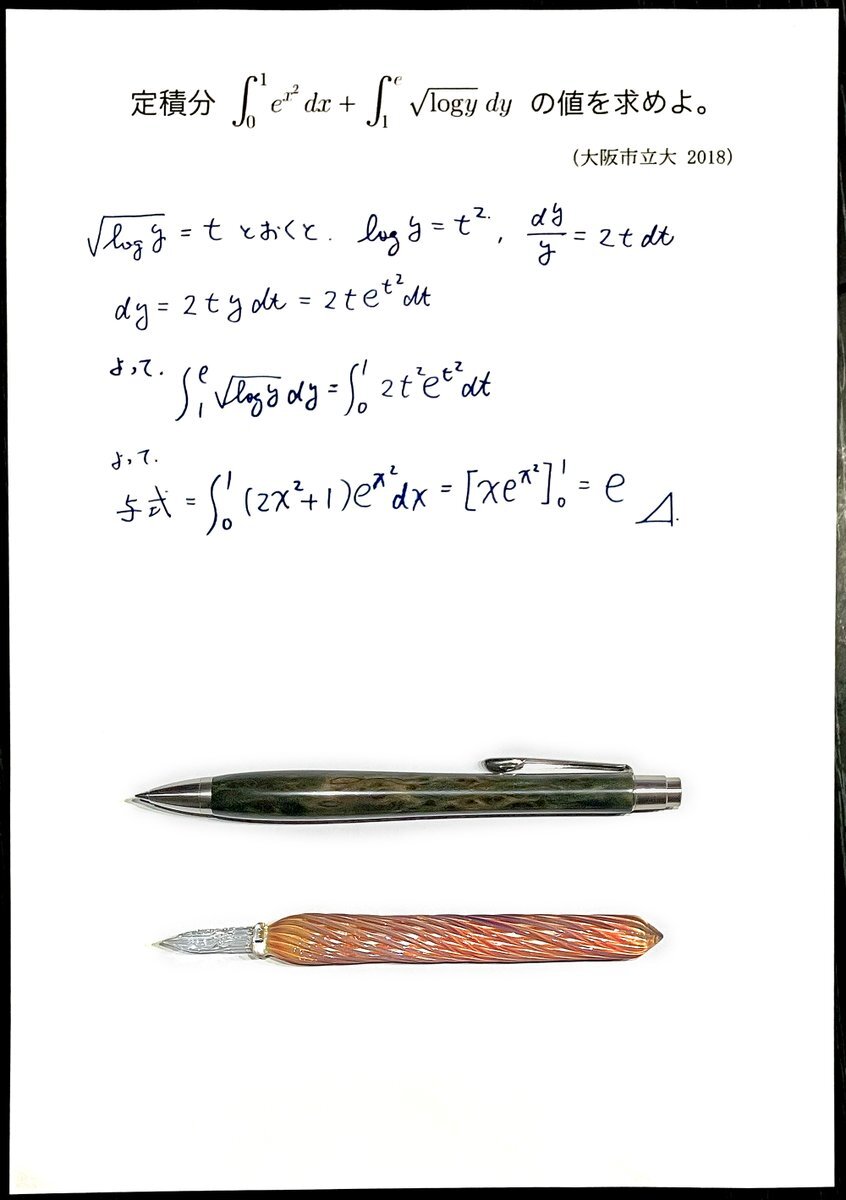 定積分 ∫₀¹ e^{x²} dx + ∫₁ᵉ √(logy) dy の値を求めよ。
(大阪市立大 2018)
√(log y) = t とおくと. log y = t². , dy/y = 2t dt
dy = 2t y dt = 2t e^{t²} dt
よって. ∫₁ᵉ √(log y) dy = ∫₀¹ 2t² e^{t²} dt
よって.
与式 = ∫₀¹ (2x²+1) e^{x²} dx = [x e^{x²}]₀¹ = e